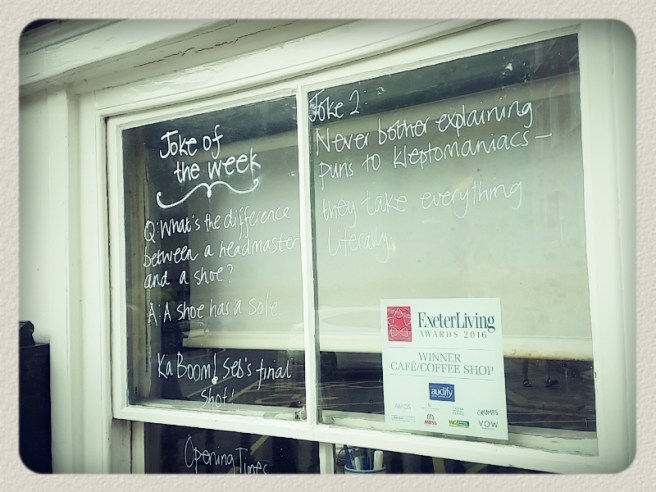 Joke of
the week
Q: What's the difference
between a headmaster
and a shoe?
A: A shoe has a sole
Ka Boom! Seb's final
shot!
Opening Times
Joke 2:
Never bother explaining
puns to kleptomaniacs -
they take everything
literally.
ExeterLiving
AWARDS 2016
WINNER
CAFÉ/COFFEE SHOP
audify
VOW